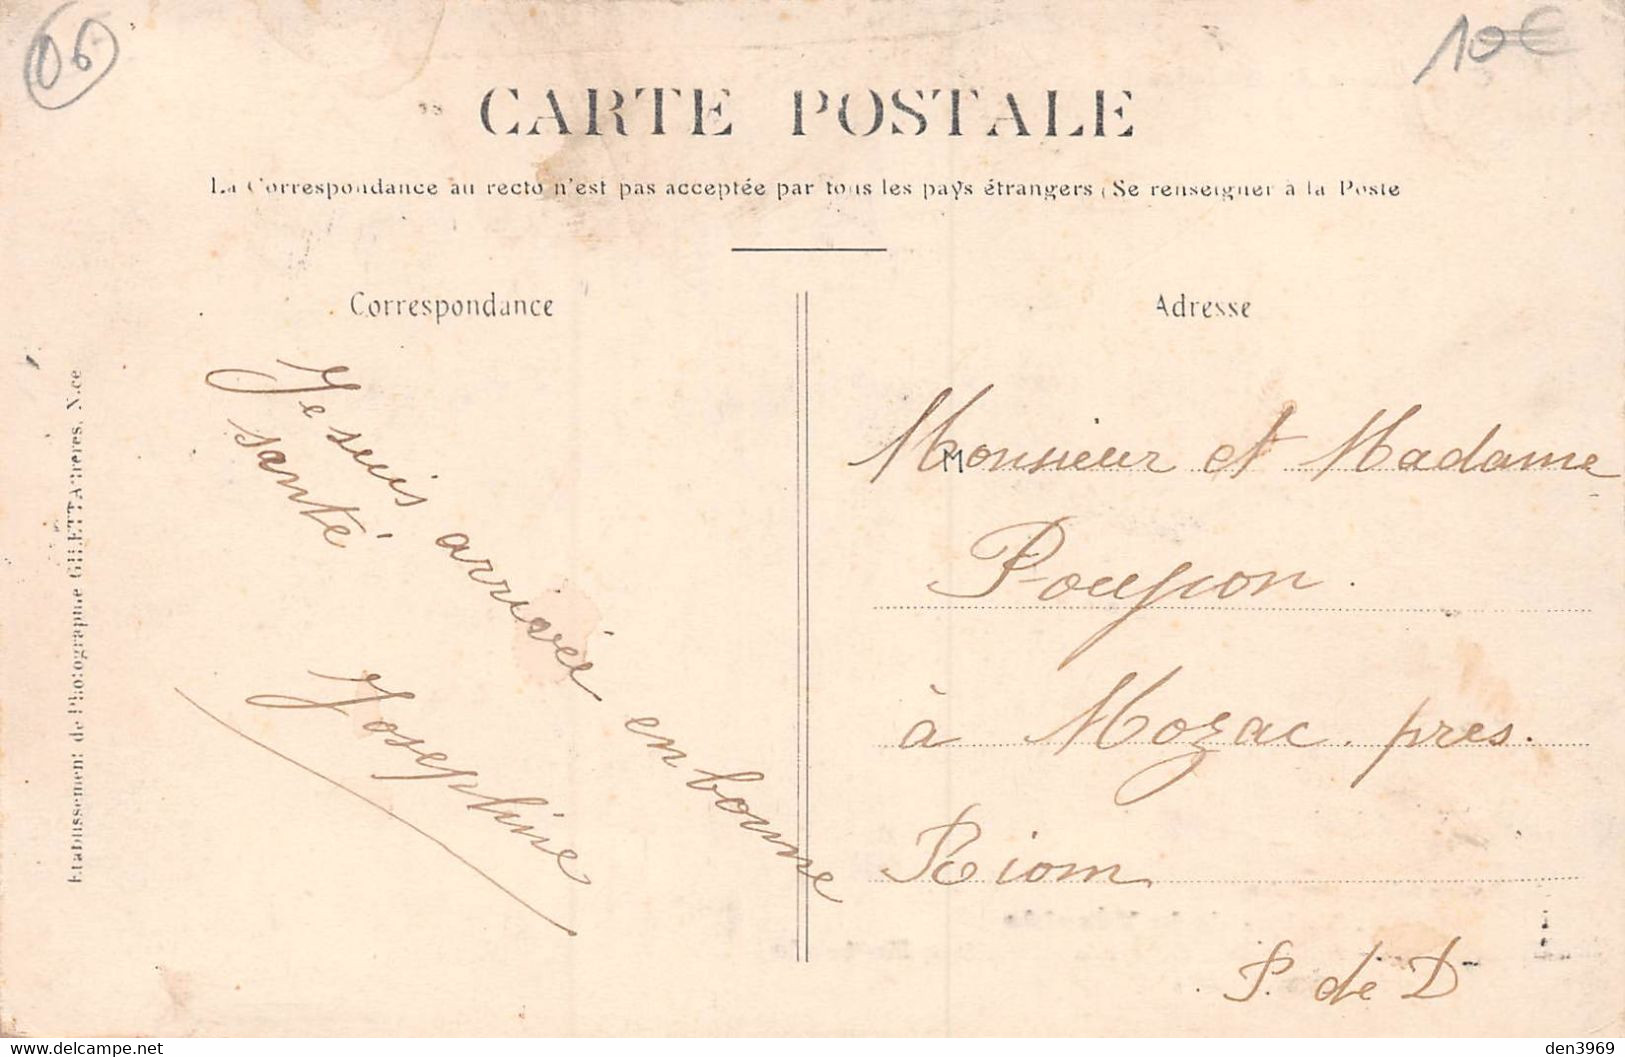 06
10€
CARTE POSTALE
La Correspondance au recto n'est pas acceptée par tous les pays étrangers (Se renseigner à la Poste
Correspondance
Je suis arrivée en bonne
santé
Josephine
Etablissement de Photographie GILETTA frères, Nice
Adresse
Monsieur et Madame
M
Poupon.
à Mozac. pres.
Riom
P. de D-
den3969